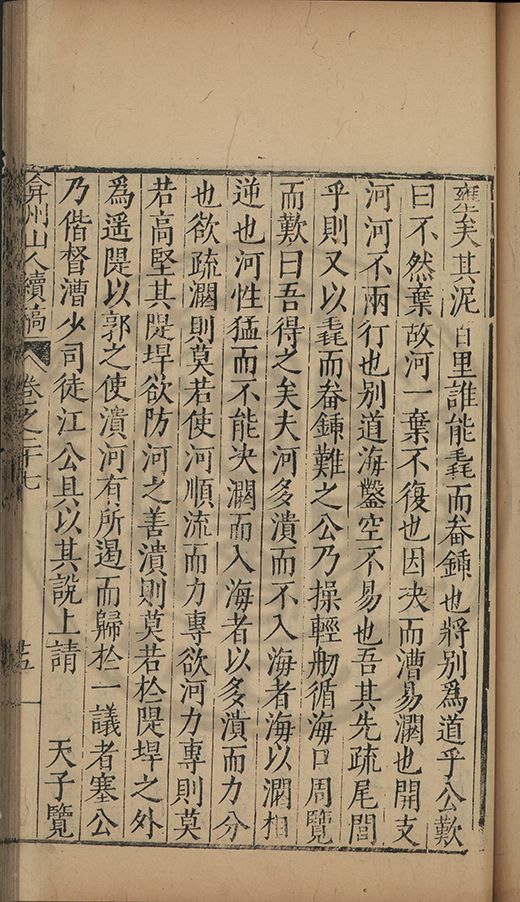 壅矣其泥百里誰能毳而畚鍤也將別爲道乎公歎
曰不然棄故河一棄不復也因決而漕易瀾也開支
河河不兩行也別道海鑿空不易也吾其先疏尾閭
乎則又以毳而畚鍤難之公乃操輕舠循海口周覽
而歎曰吾得之矣夫河多潰而不入海者海以瀾相
逆也河性猛而不能決瀾而入海者以多潰而力分
也欲疏瀾則莫若使河順流而力專欲河力專則莫
若高堅其隄垾欲防河之善潰則莫若於隄垾之外
爲遥隄以郭之使潰河有所遏而歸於一議者塞公
乃偕督漕少司徒江公具以其說上請 天子覽
弇州山人續稿 卷之二十七